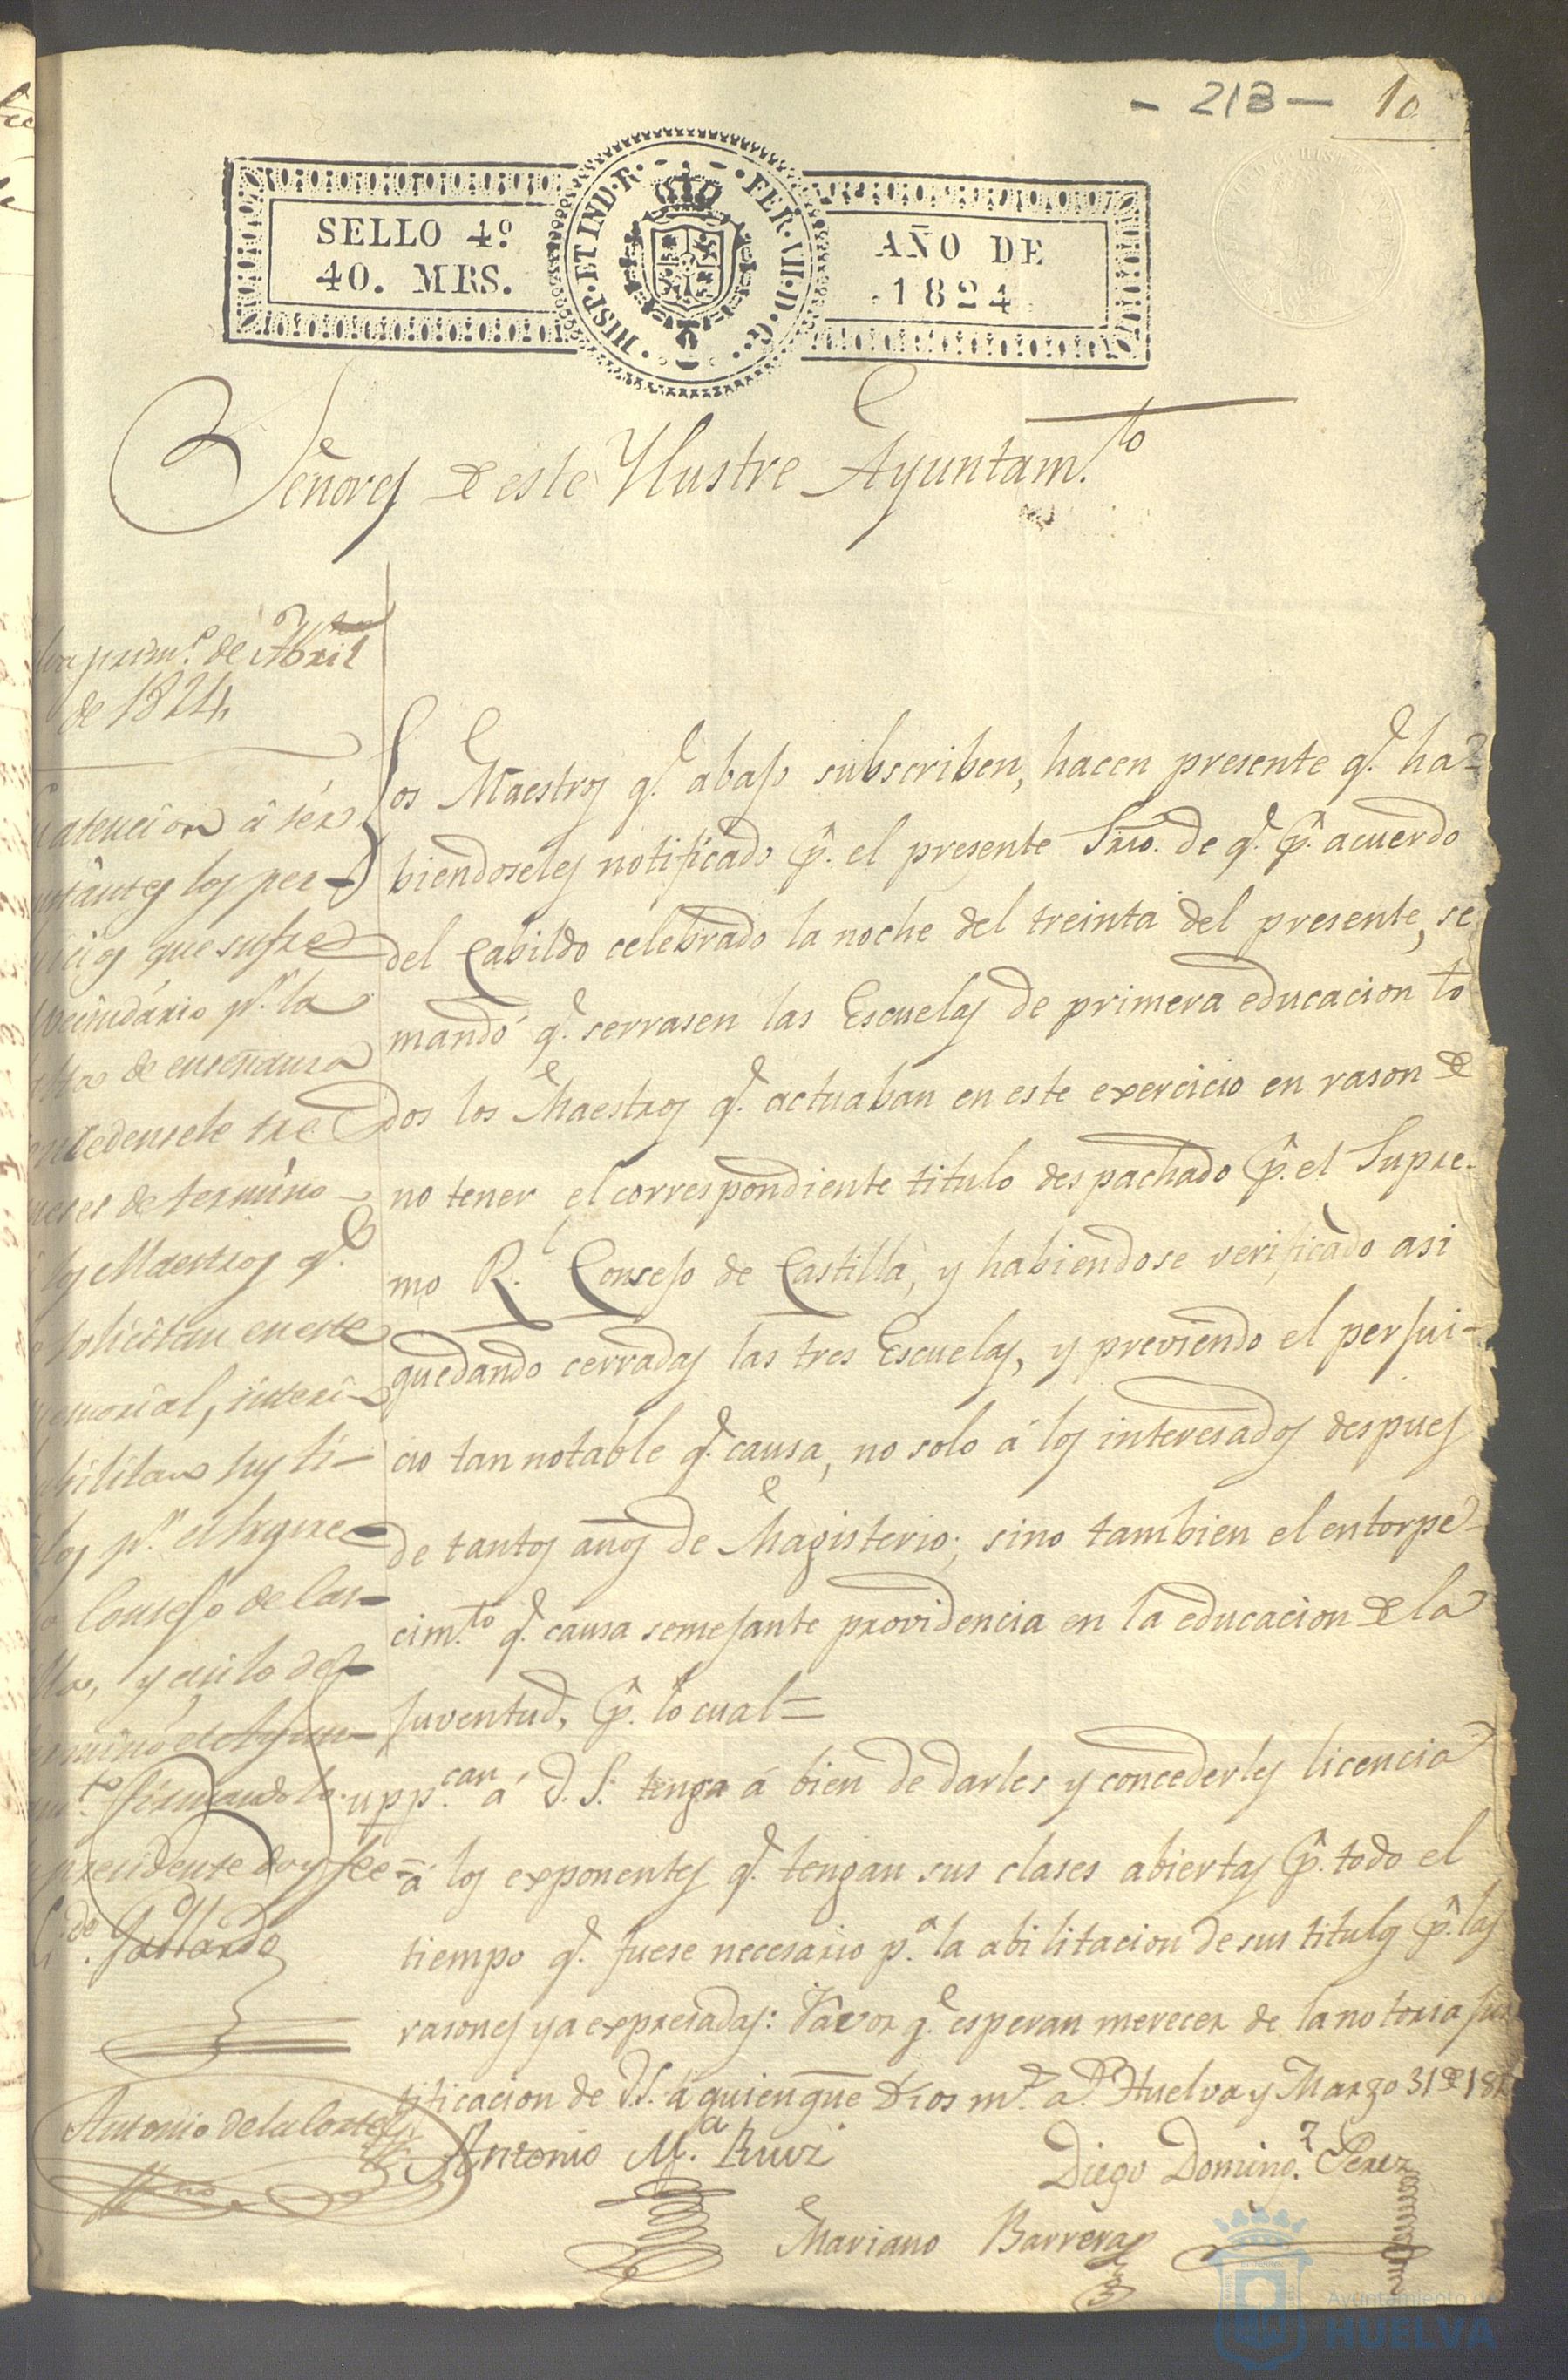 - 213 - 10
SELLO 4º
40. MRS.
HISP·ET IND·R· ·FER·VII·D·G·
AÑO DE
1824
Señores de este Ylustre Ayuntam.to
prim.º de Abril
de 1824
atencion á ser
los per-
que sufre
vecindario p.r la
de enseñanza
concedensele tre
meses de termino
los Maestros q.e
solicitan en este
memorial, interi
habilitan sus ti-
p.r el Supre
Consejo de Cas-
y asi lo de-
termino el Ayun-
tam.to firmandolo
presidente doy fee =
L.do Gallardo
Antonio de la Corte
Ss.no
Los Maestros q.e abajo subscriben, hacen presente q.e ha-
biendoseles notificado p.r el presente Srio. de q.e p.r acuerdo
del Cabildo celebrado la noche del treinta del presente, se
mandó q.e serrasen las Escuelas de primera educacion to
dos los Maestros q.e actuaban en este exercicio en rason de
no tener el correspondiente titulo despachado p.r el Supre-
mo R.l Consejo de Castilla, y habiendose verificado asi
quedando cerradas las tres Escuelas, y previendo el perjui-
cio tan notable q.e causa, no solo á los interesados despues
de tantos años de Magisterio; sino tambien el entorpe-
cim.to q.e causa semejante providencia en la educacion de la
juventud, p.r lo cual =
Supp.can á V.S. tenga á bien de darles y concederles licencia
á los exponentes q.e tengan sus clases abiertas p.r todo el
tiempo q.e fuese necesario p.a la abilitacion de sus titulos p.r las
rasones ya expresadas: Favor q.e esperan merecer de la notoria jus
tificacion de V.S. á quien gue Dios m.s a.s Huelva y Marzo 31 de 182
Antonio M.a Ruiz
Diego Doming.z Perez
Mariano Barreras
Ayuntamiento
HUELVA